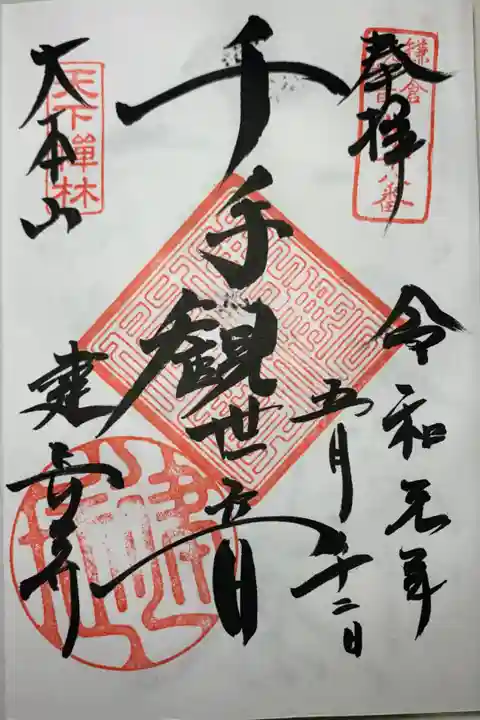 奉拝
令和元年
五月十二日
千手観世音
大本山
建長寺
天下禅林
鎌倉
番